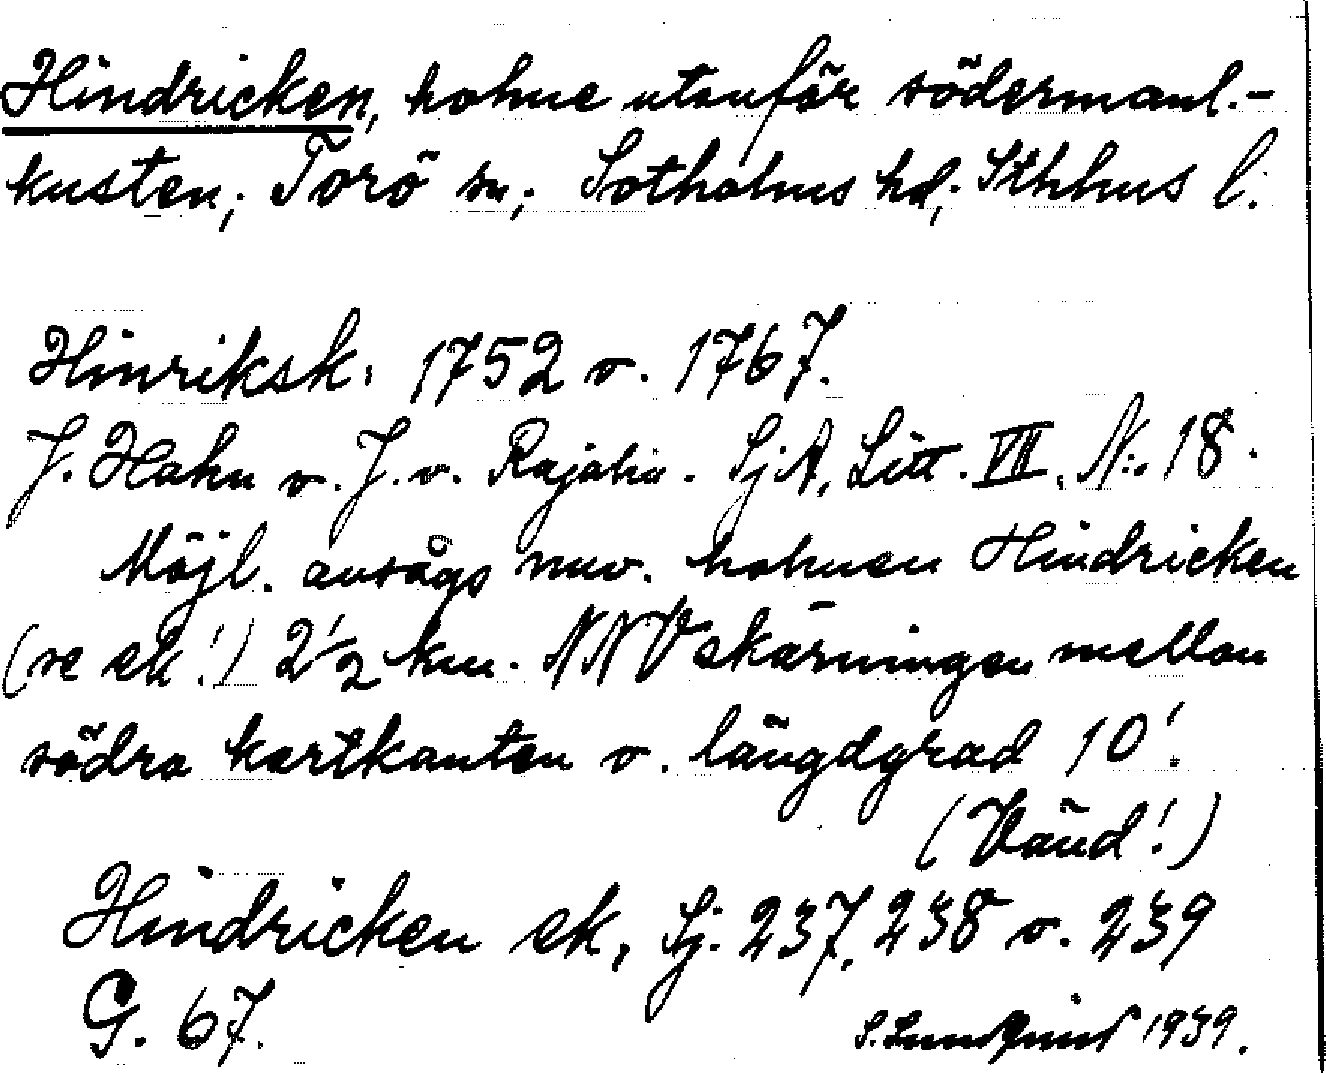 Hindricken, holme utanför södermanl.-
kusten; Torö sn; Sotholms hd; Sthlms l.
Hinriksk. 1752 o. 1767.
J. Hahn o. J. v. Rajalin. SjA, Litt. VIII, N:o 18.
Möjl. avsågs nuv. holmen Hindricken
(se ek!) 2 1/2 km. NNV skärningen mellan
södra kartkanten o. längdgrad 10'.
(Vänd!)
Hindricken ek, Sj. 237, 238 o. 239
G. 67.
S. Lundquist 1939.